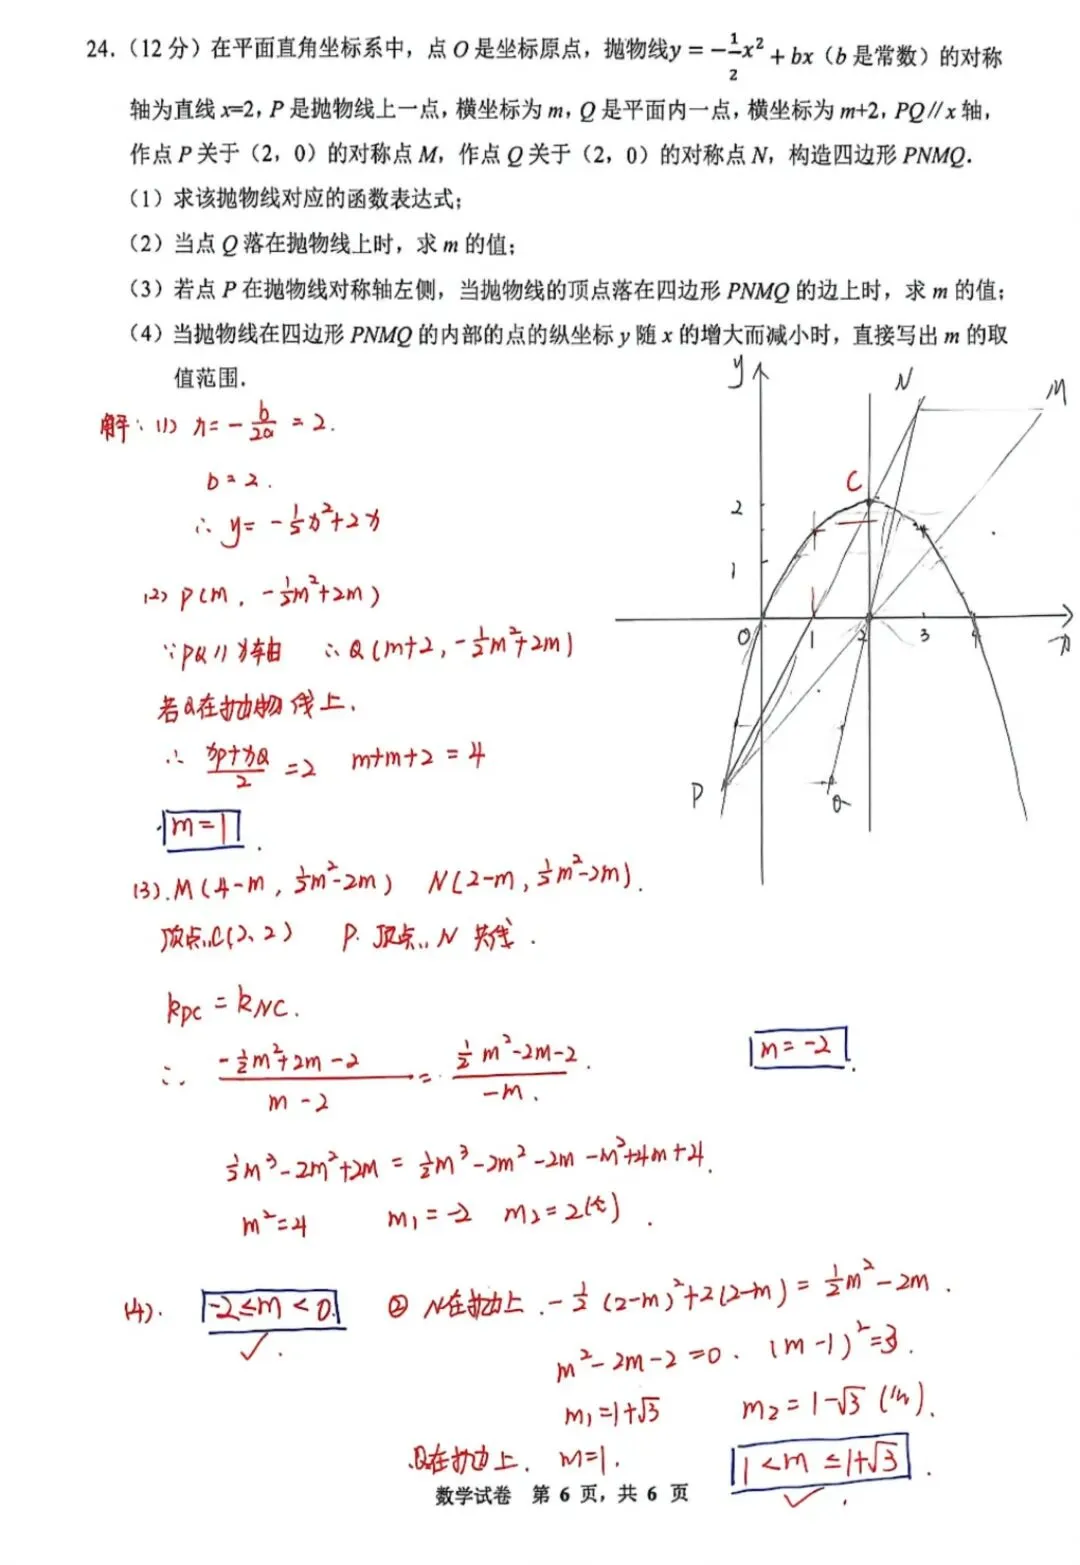 24.（12 分）在平面直角坐标系中，点 O 是坐标原点，抛物线y = −1/2x² + bx（b 是常数）的对称
轴为直线 x=2，P 是抛物线上一点，横坐标为 m，Q 是平面内一点，横坐标为 m+2，PQ∥x 轴，
作点 P 关于（2，0）的对称点 M，作点 Q 关于（2，0）的对称点 N，构造四边形 PNMQ．
（1）求该抛物线对应的函数表达式；
（2）当点 Q 落在抛物线上时，求 m 的值；
（3）若点 P 在抛物线对称轴左侧，当抛物线的顶点落在四边形 PNMQ 的边上时，求 m 的值；
（4）当抛物线在四边形 PNMQ 的内部的点的纵坐标 y 随 x 的增大而减小时，直接写出 m 的取
值范围．
y N M
C
2
1
0 1 2 3 4 x
P Q
解：(1) x = −b/2a = 2.
b = 2.
∴ y = −1/2x²+2x
(2) P(m, −1/2m²+2m)
∵PQ∥x轴 ∴Q(m+2, −1/2m²+2m)
若Q在抛物线上.
∴ xP+xQ/2 = 2 m+m+2 = 4
m=1.
(3). M(4−m, 1/2m²−2m) N(2−m, 1/2m²−2m).
顶点C(2、2) P. 顶点. N 共线.
kPC = kNC.
∴ −1/2m²+2m−2/m−2 = 1/2m²−2m−2/−m.
m=−2.
1/2m³−2m²+2m = 1/2m³−2m²−2m−m²+4m+4.
m²=4 m₁=−2 m₂=2(舍).
(4). −2≤m<0 ✓.
② N在抛上. −1/2(2−m)²+2(2−m) = 1/2m²−2m.
m²−2m−2=0. (m−1)²=3.
m₁=1+√3 m₂=1−√3
Q在抛上. m=1. 1<m≤1+√3 ✓.
数学试卷 第 6 页，共 6 页